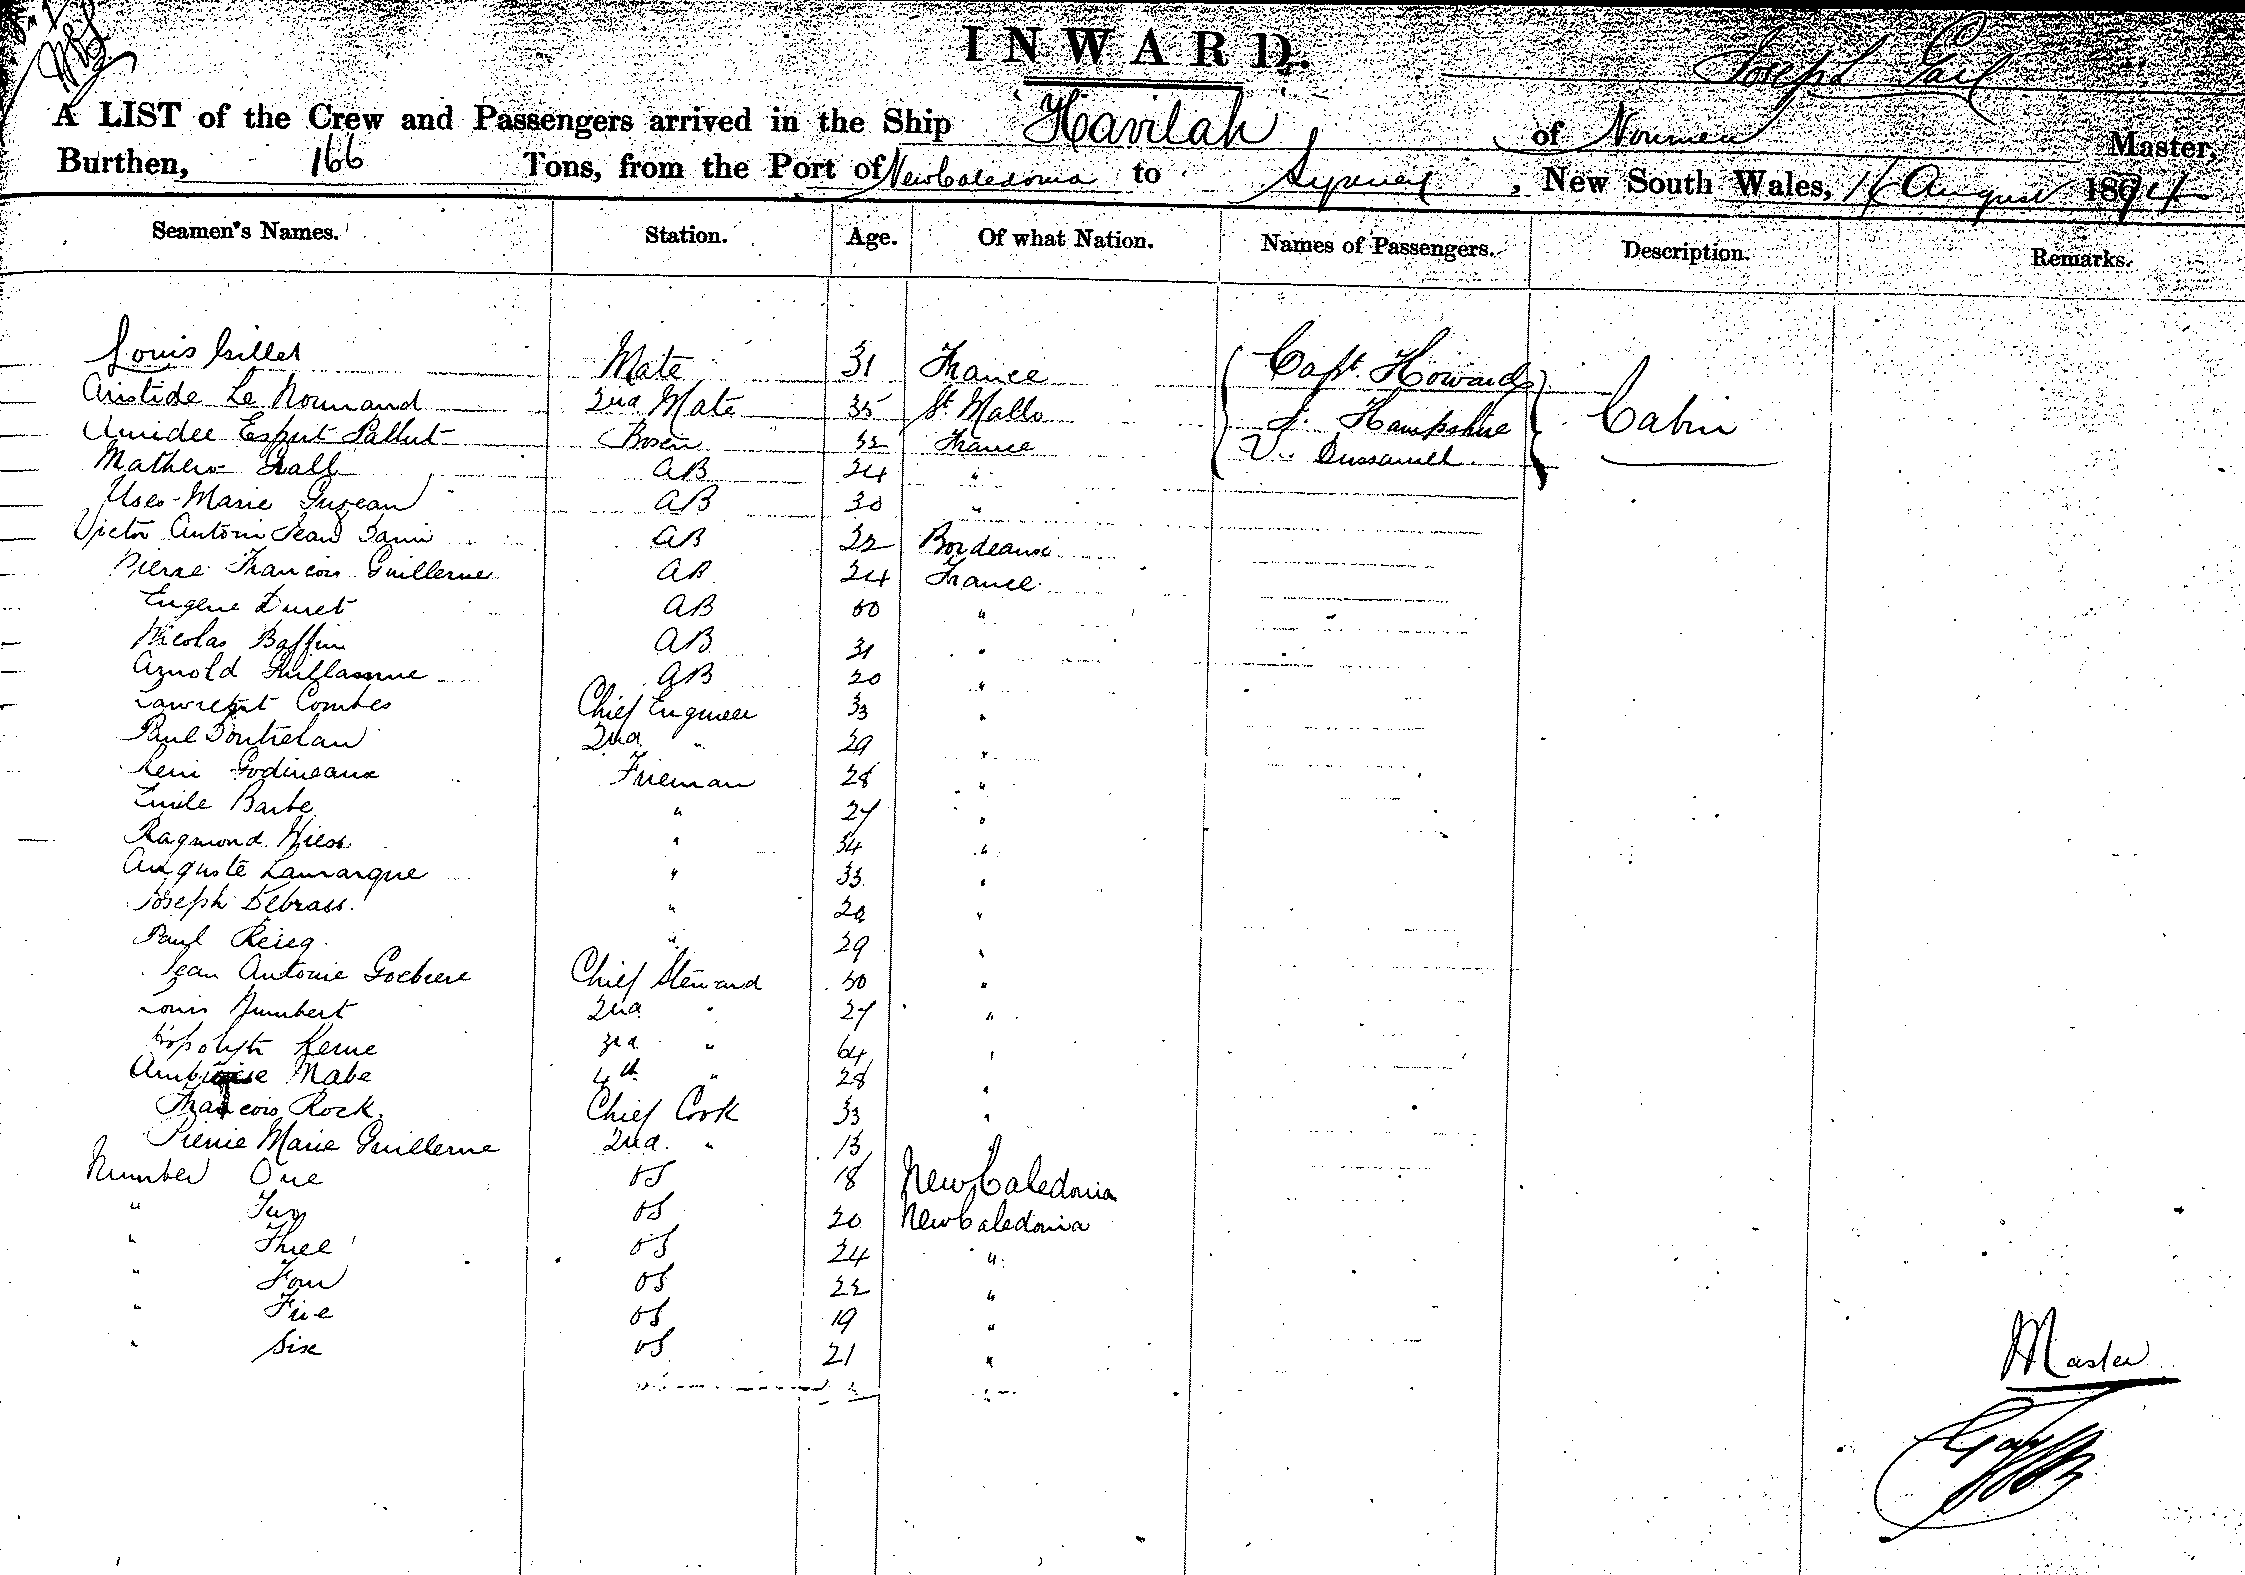 INWARD.
Joseph
A LIST of the Crew and Passengers arrived in the Ship Havilah of Noumea Master,
Burthen, 166 Tons, from the Port of New Caledonia to Sydney, New South Wales, August 1894
Seamen's Names. Station. Age. Of what Nation. Names of Passengers. Description. Remarks.
Louis Gillet Mate 31 France Capt. Howard
Aristide Le Normand 2nd Mate 35 St Mallo Hampshire Cabin
Amidee Esprit Pallut Bosen 32 France V.
Mathew AB 24 "
Marie AB 30 "
Victor Antoni Jean AB 32 Bordeaux
Pierre Francois Guillerme AB 24 France
Eugene Duret AB 50 "
Nicolas Baffin AB 31 "
Arnold AB 20 "
Combes Chief Engineer 33 "
Paul 2nd " 29 "
Godineaux Fireman 28 "
Emile Barbe " 27 "
Raymond " 34 "
Auguste Lamarque " 33 "
Joseph " 29 "
Paul " 29 "
Jean Antonie Chief Steward 30 "
Louis 2nd " 27 "
3rd " 64 "
Ambroise Mabe 4th " 28 "
Francois Rock Chief Cook 33 "
Pierrie Marie Guillerme 2nd " 13 "
Number One OS 18 New Caledonia
" Two OS 20 New Caledonia
" Three OS 24 "
" Four OS 22 "
" Five OS 19 "
" Six OS 21 "
Master